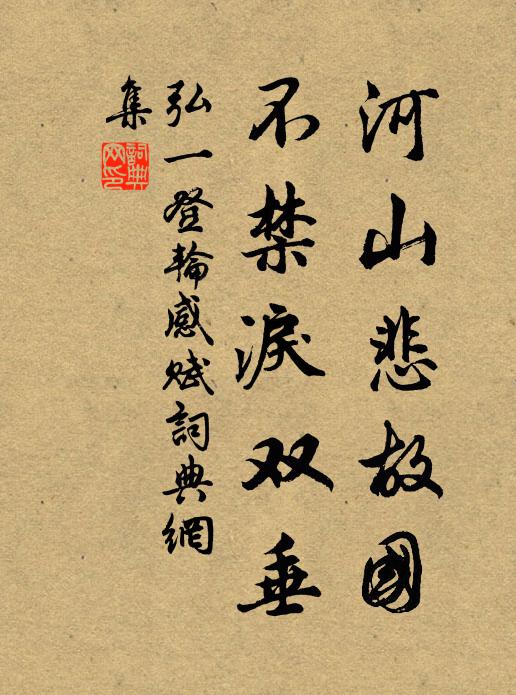 河山悲故國
不禁淚双垂
弘一登輪感賦詞典網
集
詞典
网印